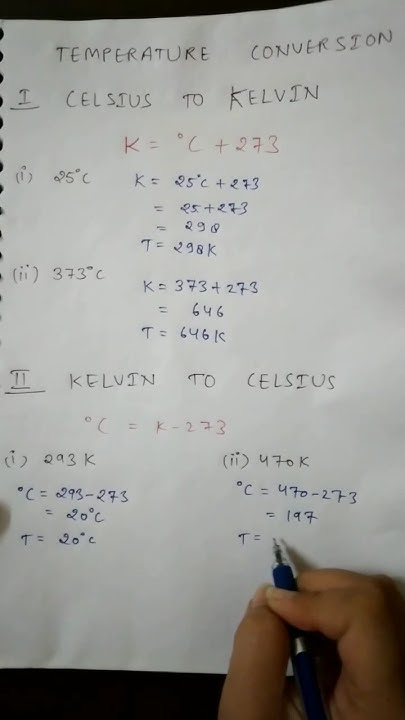 TEMPERATURE CONVERSION
I CELSIUS TO KELVIN
K = °C + 273
(i) 25°C K = 25°C + 273
= 25 + 273
= 298
T = 298K
(ii) 373°C
K = 373 + 273
= 646
T = 646K
II KELVIN TO CELSIUS
°C = K - 273
(i) 293 K
°C = 293 - 273
= 20°C
T = 20°C
(ii) 470K
°C = 470 - 273
= 197
T =